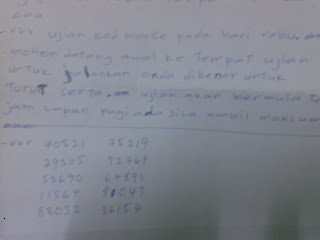 -vvv ujian kod morse pada hari rabu
mohon datang awal ke tempat ujian
untuk jalankan anda dibenar untuk
turut serta. ujian akan bermula
jam lapan pagi ada sila ambil maklum
-vvv 40521 75219
29305 92767
53690 67891
11564
88032 36154